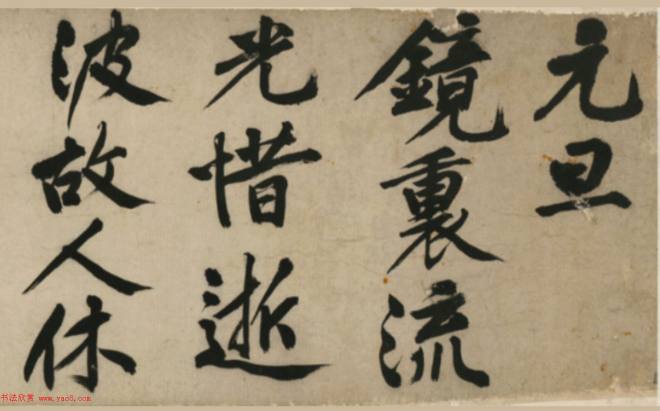 元旦
鏡裏流
光惜逝
波故人休
书法欣赏 www.yac8.com